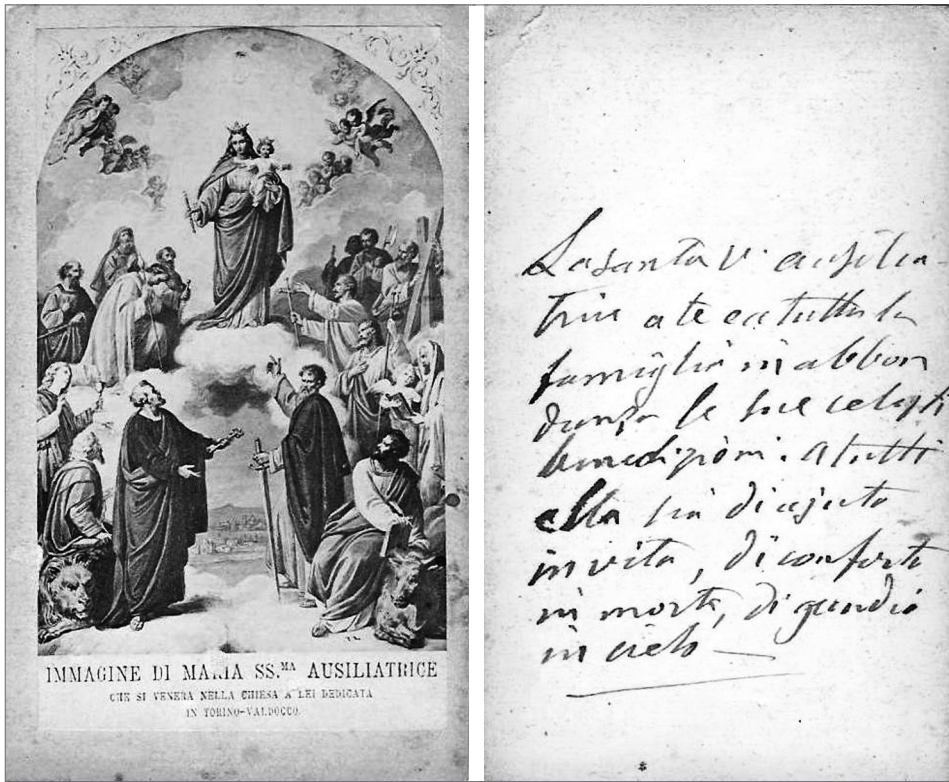 IMMAGINE DI MARIA SS.MA AUSILIATRICE
CHE SI VENERA NELLA CHIESA A LEI DEDICATA
IN TORINO-VALDOCCO.
La santa V. ausilia-
trice a te e a tutta la
famiglia in abbon
danza le sue celesti
benedizioni. A tutti
ella sia di ajuto
in vita, di conforto
in morte, di gaudio
in cielo